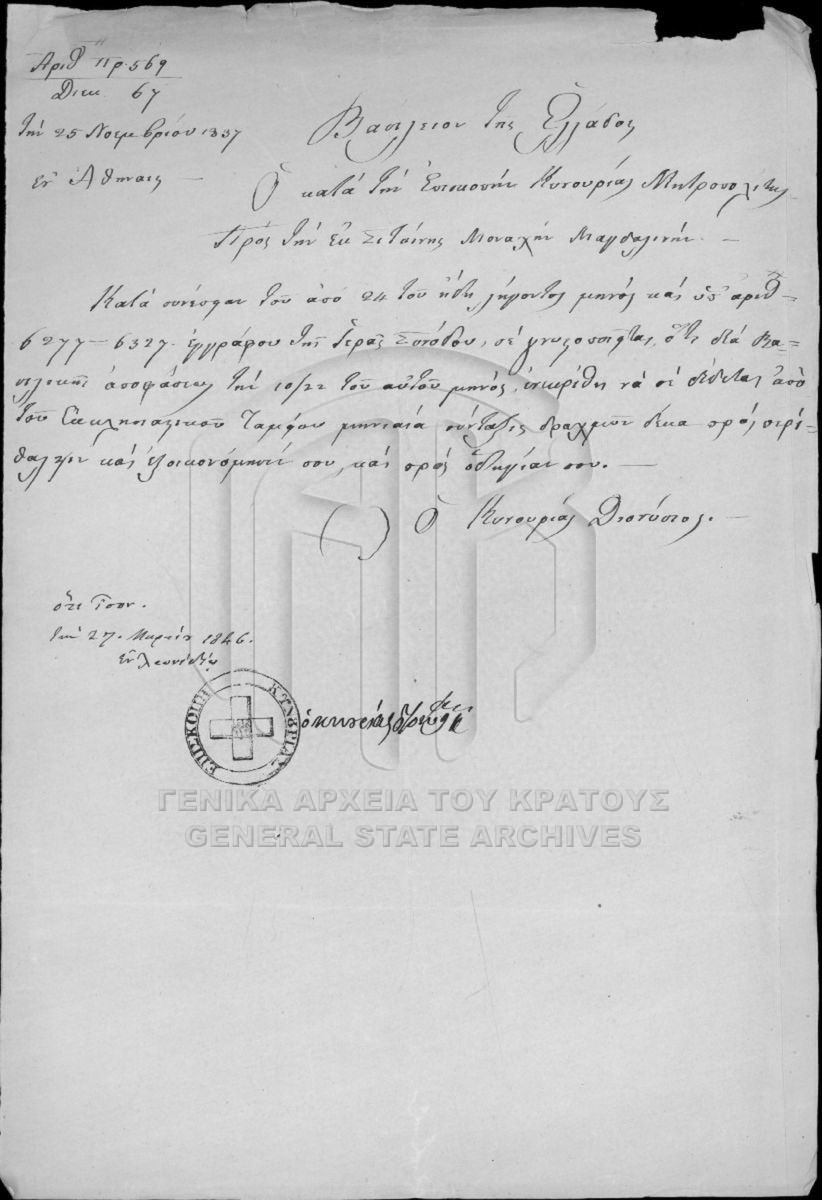 Αριθ Πρ. 569
Διεκ. 67
Τήν 25 Νοεμβρίου 1837
Εν Αθήναις —
Βασίλειον της Ελλάδος
Ο κατά την Επισκοπήν Κυνουρίας Μητροπολίτης
Πρός την εκ Σιταίνης Μοναχήν Μαγδαληνήν. —
Κατά συνέπειαν του από 24 του ήδη λήγοντος μηνός καί υπ' αριθ=
6277–6327. εγγράφου της Ιεράς Συνόδου, σέ γνωστοποιείται, ότι διά Βα=
σιλικής αποφάσεως την 10/22 του αυτού μηνός, ενεκρίθη νά σέ δίδεται από
του Εκκλησιαστικού Ταμείου μηνιαία σύνταξις δραχμών δέκα πρός περί=
θαλψιν καί εξοικονόμησίν σου, καί πρός οδηγίαν σου. —
( ) Ο Κυνουρίας Διονύσιος. —
ότι Ίσον.
την 27. Μαρτίου 1846.
Εν Λεωνιδίω
ΕΠΙΣΚΟΠΗ ΚΥΝΟΥΡΙΑΣ
ο κυνουρίας
ΓΕΝΙΚΑ ΑΡΧΕΙΑ ΤΟΥ ΚΡΑΤΟΥΣ
GENERAL STATE ARCHIVES